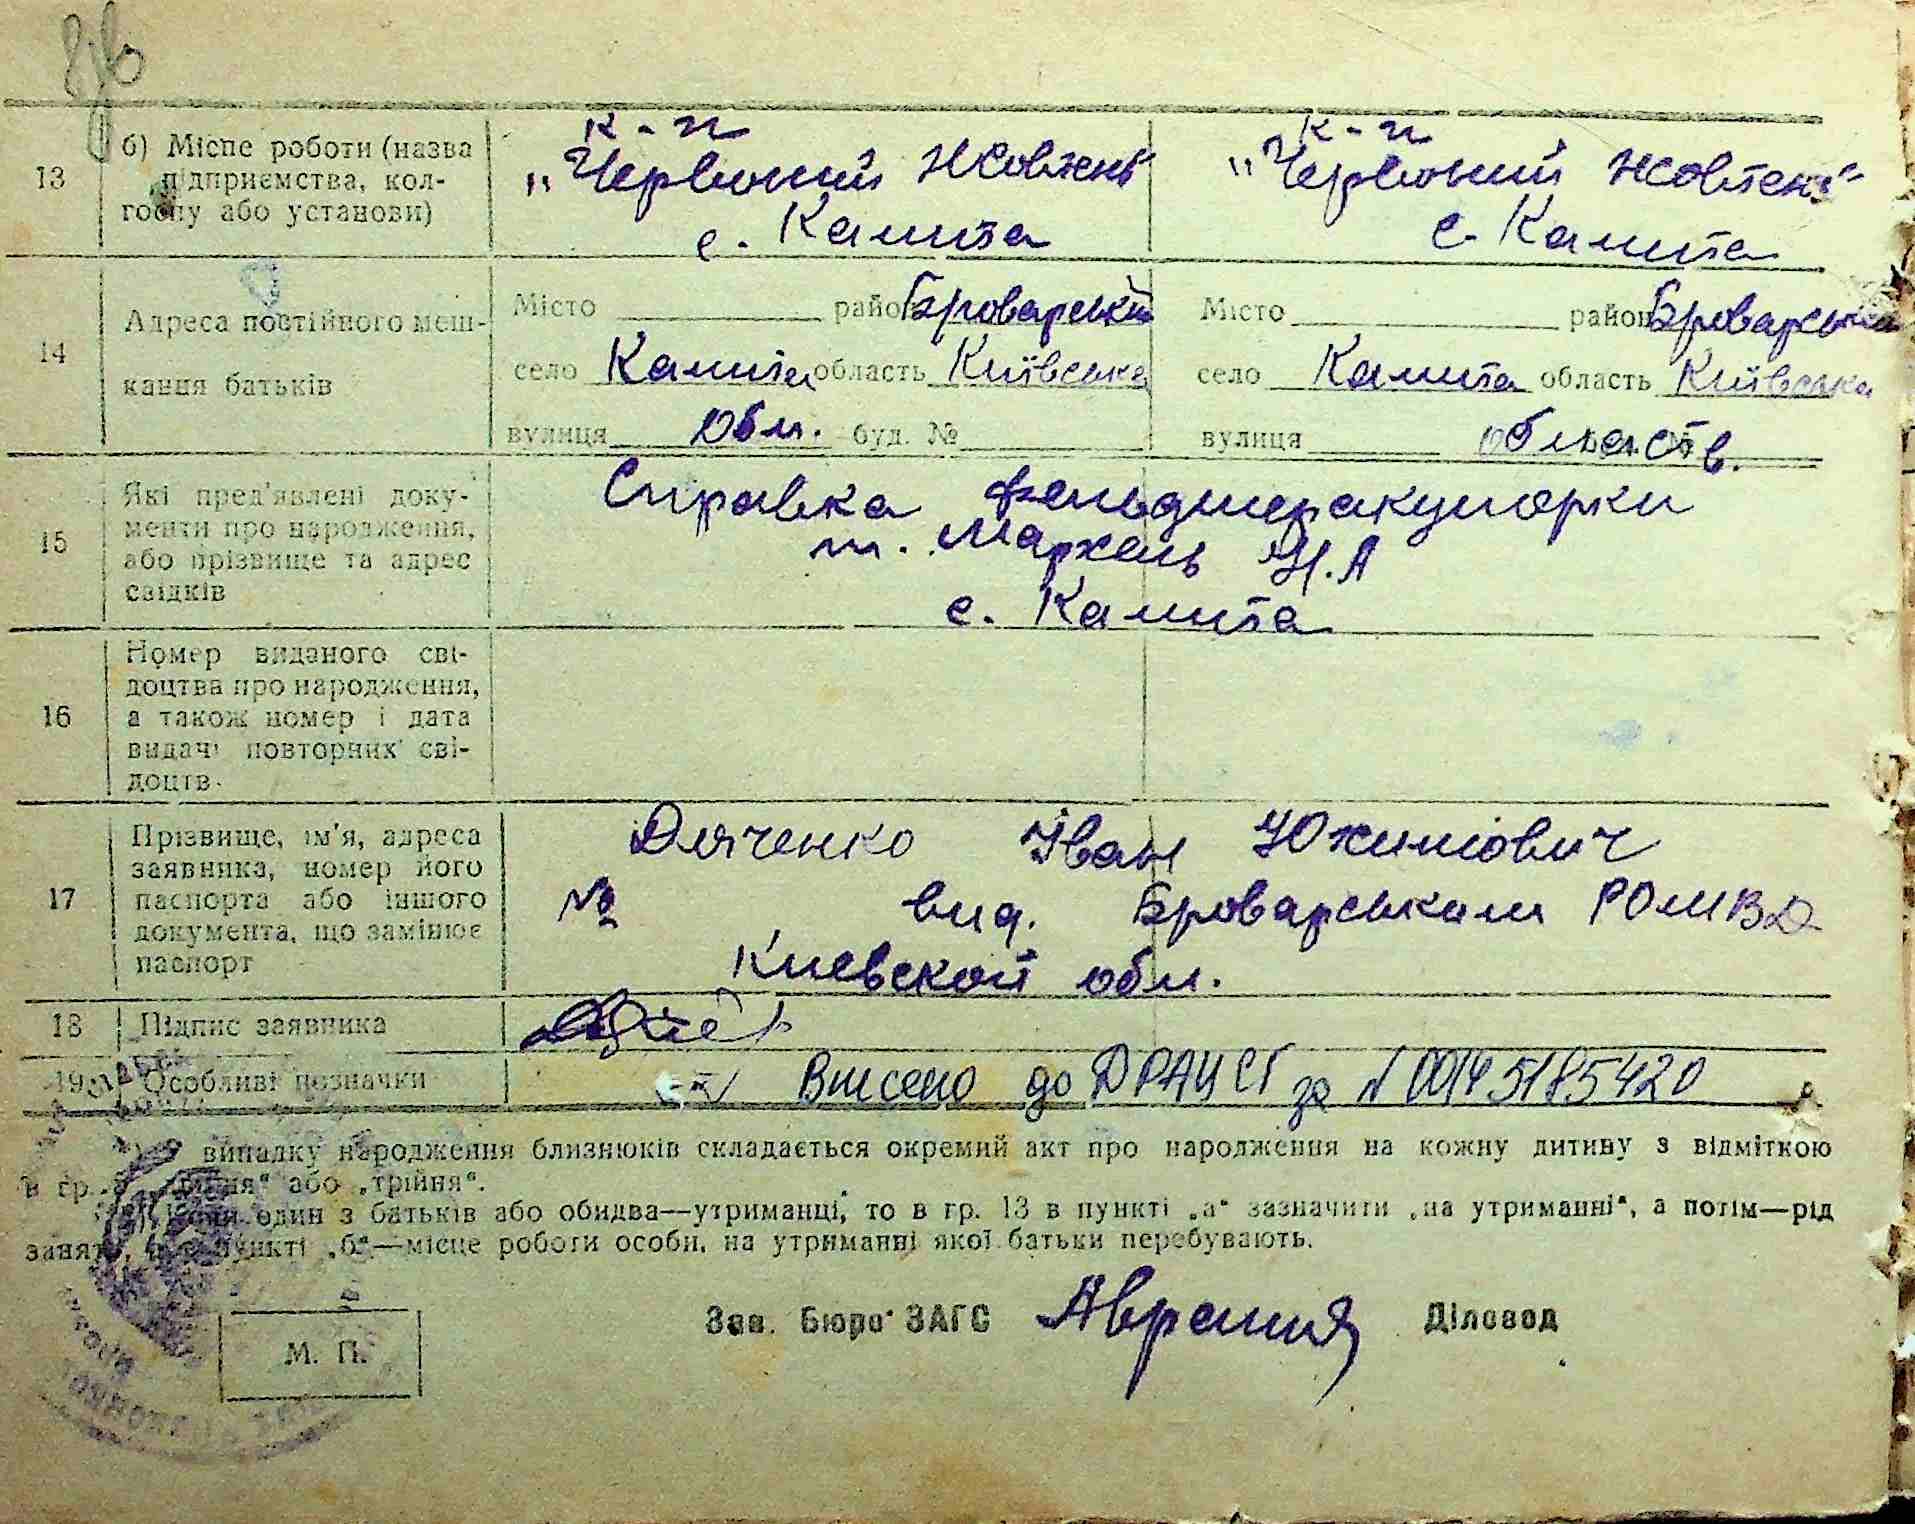 13
б) Місце роботи (назва підприємства, колгоспу або установи)
к-п
„Червоний Жовтень"
с. Калита
к-п
„Червоний Жовтень"
с. Калита
14
Адреса постійного мешкання батьків
Місто район Броварський
село Калита область Київська
вулиця буд. №
Місто район Броварський
село Калита область Київська
вулиця
15
Які пред'явлені документи про народження, або прізвище та адрес свідків
Справка фельдшеракушорки
т. Мархель Н.А
с. Калита
16
Номер виданого свідоцтва про народження, а також номер і дата видачі повторних свідоцтв.
17
Прізвище, ім'я, адреса заявника, номер його паспорта або іншого документа, що замінює паспорт
Дяченко Іван Юхимович
№ вид. Броварським РОМВД
Киевской обл.
18
Підпис заявника
19
Особливі позначки
Внесено до ДРАЦСГ за № 00145185420
випадку народження близнюків складається окремий акт про народження на кожну дитину з відміткою
в гр. або „трійня“.
один з батьків або обидва—утриманці, то в гр. 13 в пункті „а“ зазначити „на утриманні“, а потім—рід
пункті „б“—місце роботи особи, на утриманні якої батьки перебувають.
Зав. Бюро ЗАГС Діловод
М. П.